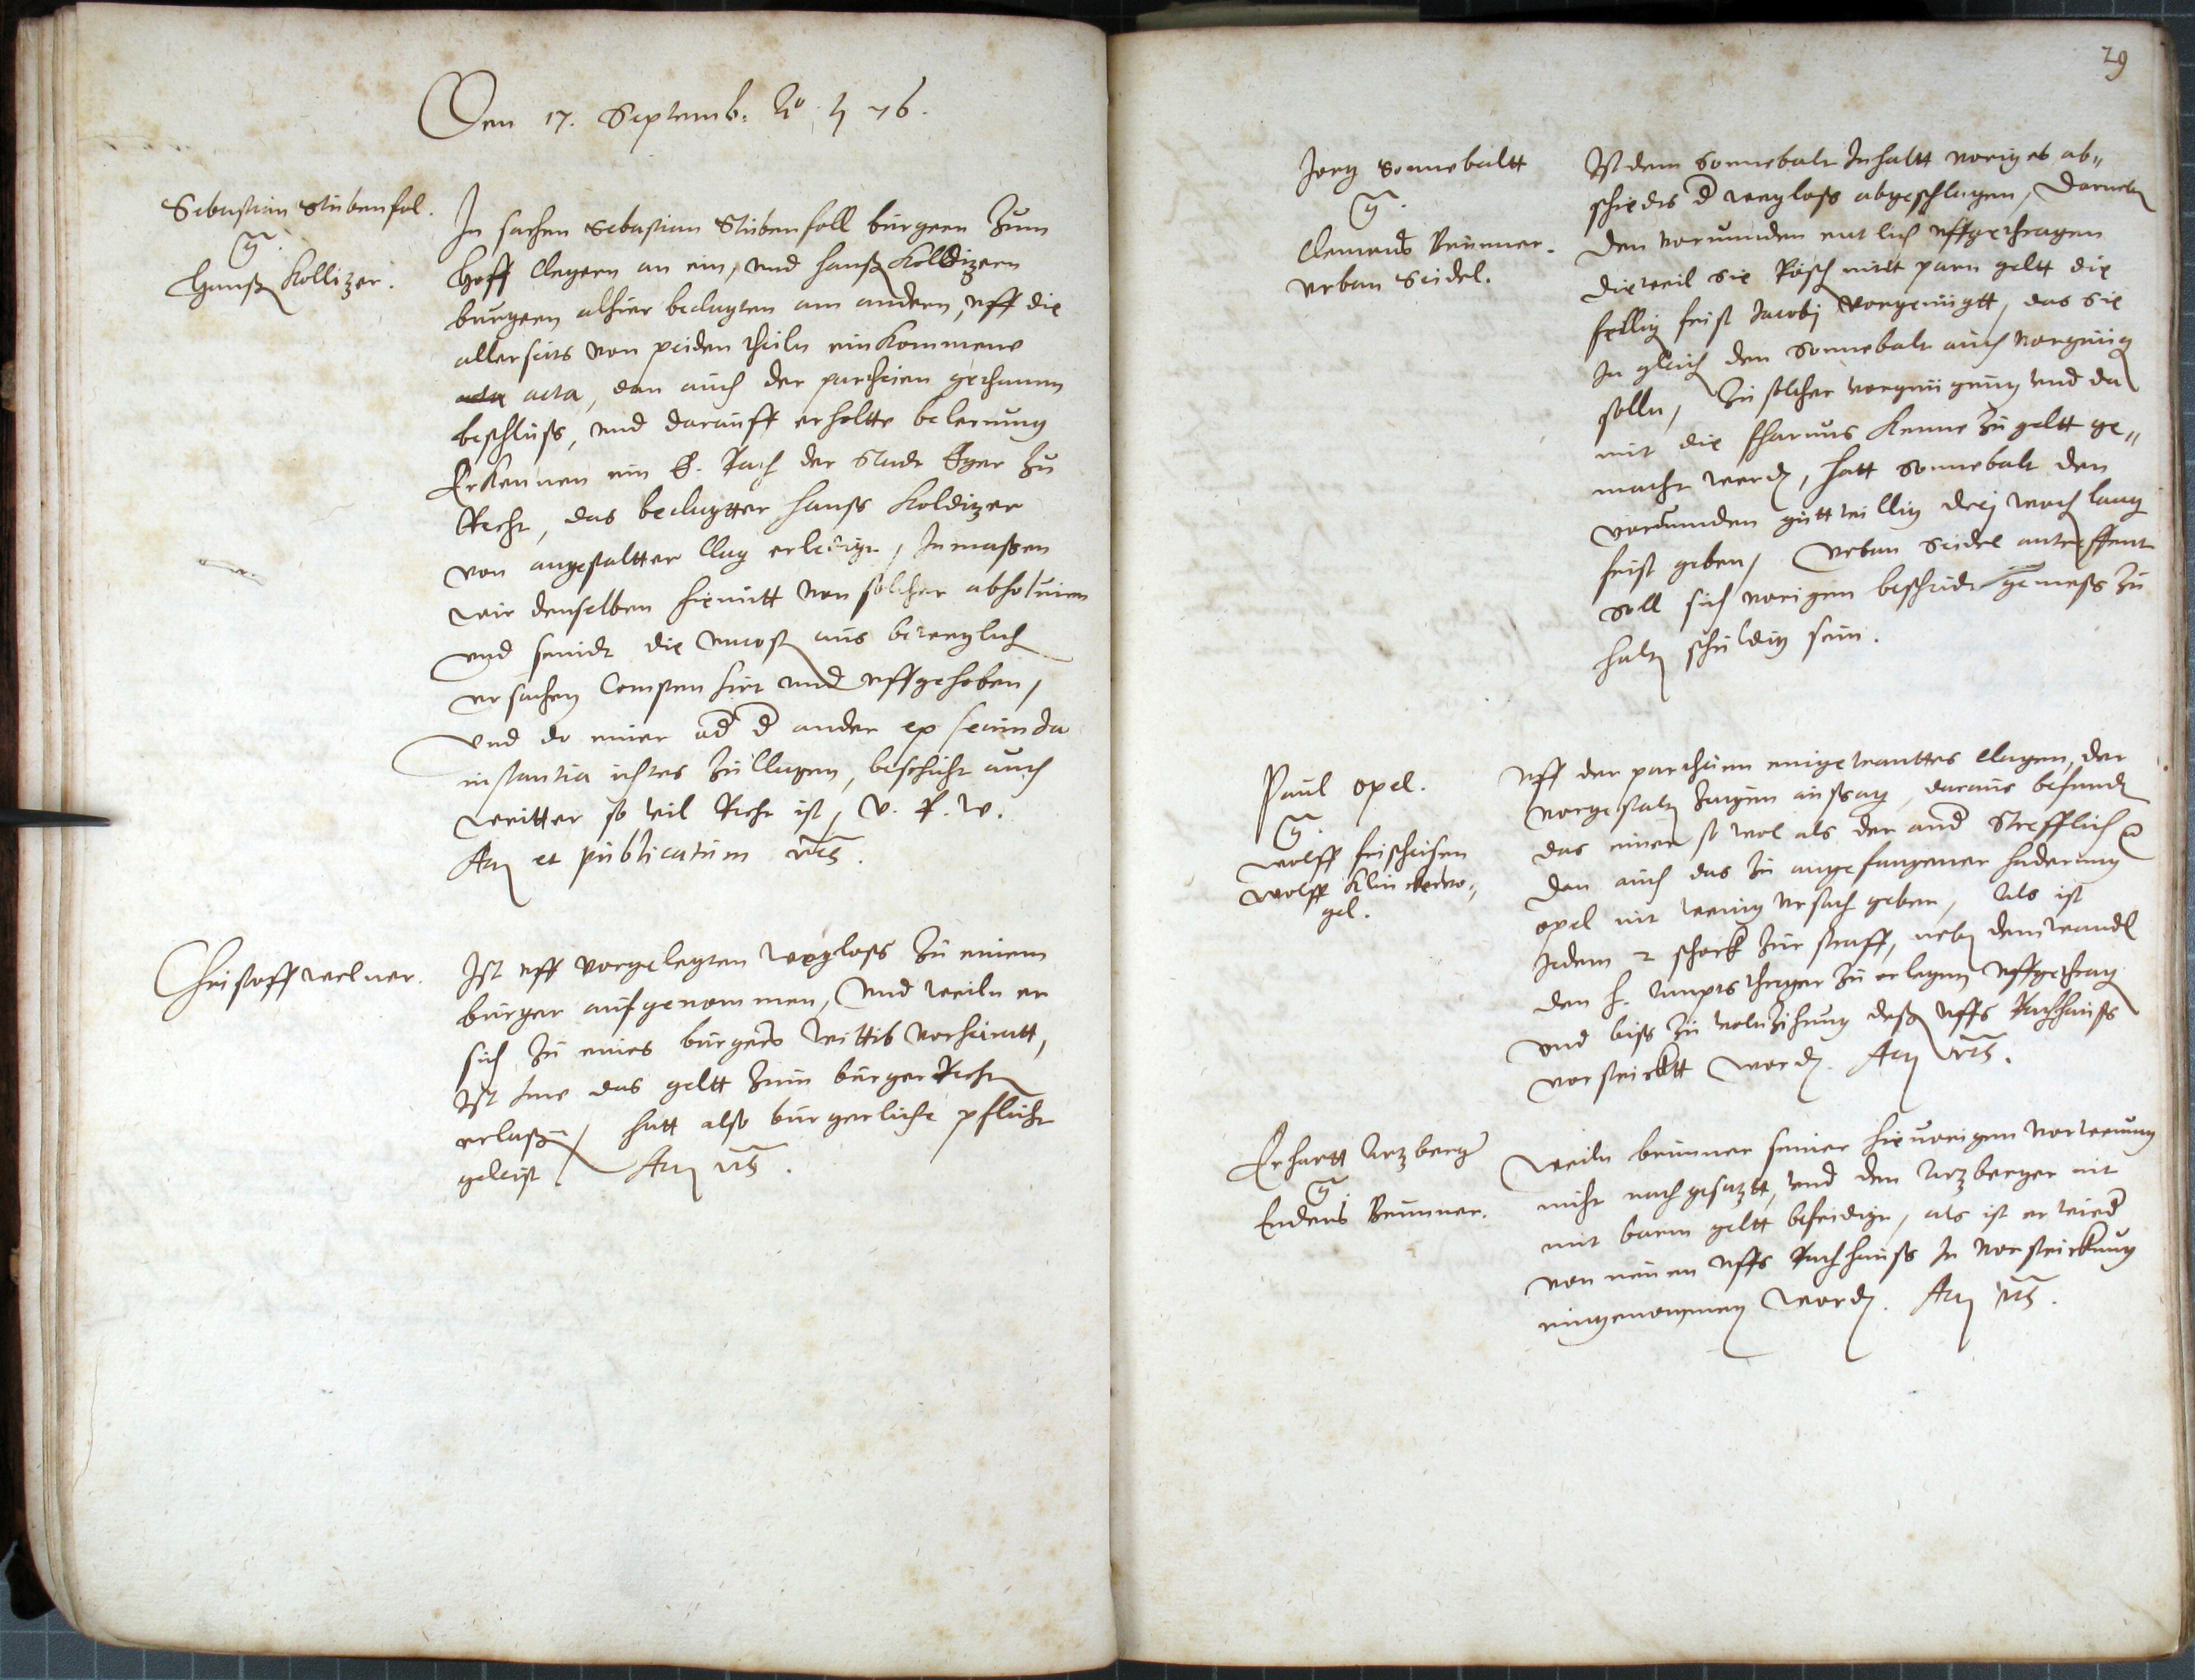 Den 17. Septemb: Ao. 76.
Sebastian Stubenfol.
Hanß Kollitzer.
In sachen Sebastian Stubenfoll burgern zum
Hoff Clegern an ein, vnd hanß Kolditzern
burgern alhier beclagten am andern, vff die
allerseits von peiden theiln einkommene
acta acta, dan auch der partheien gethanen
beschluß, vnd darauff erholtte belernung
Erkennen ein E. Rath der Stadt Eger zu
Recht, das beclagtter Hanß Kolditzer
von angestaltter Clag erledigt, Inmaßen
wir denselben hiemitt von solcher absoluiren
vnd seindt die vncost aus beweglich
vrsachen Compensirt vnd vffgehoben,
Vnd do einer od d ander ex secunda
instantia ichtes zu Clagen, beschicht auch
weitter so viel Recht ist, V. R. W.
Act et publicatum vts.
Christoff welner.
Ist vff vorgelegten wegloß zu einem
burger aufgenommen, Vnd weiln er
sich zu eines burgers wittib vorheiratt,
Ist Ime das geltt zum burger Recht
erlaßen, hatt also burgerliche pflicht
geleist. Act vts.
29
Jorg Sonnebaltt
Clemens Brunner.
Vrban Seidel.
Ist dem Sonnebalt Inhaltt voriges ab„
schiedts d wegloß abgeschlagen, Darneben
den vormunden entlich vffgethragen
dieweil sie Rösch mitt parn geltt die
fellig frist Jacobi vorgenügtt, das sie
In gleich den Sonnebalt auch vorgnüg
solln, Zu solcher vorgnügung vnd da
mit die kenne zu geltt ge„
macht werden, hatt Sonnebalt den
vormunden guttwillig drej woch lang
frist geben, Vrban Seidel antreffent
soll sich vorigen bescheidt gemeß zu
halten schuldig sein.
Paul Opel.
Wolff frischeisen
Wolff Klinckeruo„
gel.
Vff der partheien eingewantte Clagen, der
vorgestalten Zeugen aussag, daraus befunden
das einer so wol als der and Strefflich
dan auch das zu angefangener haderung
Opel nit wenig vrsach geben, Als ist
Jedem 2 schock zur straff, neben dem wandl
den H. ampts thrager zu erlegen vffgethragen
vnd biß zu volnzihung deß vffs Rathhauß
vorstricktt worden. Act vts.
Erhartt Artzberger
Enders Brunner.
Weiln brunner seiner hieuorigen vorwenung
nicht nachgesatztt, vnd den Artzberger nit
mit barm geltt befridigt, als ist er wied
von neuen vffs Rathhauß In vorstrickung
eingenommen worden. Act vts.